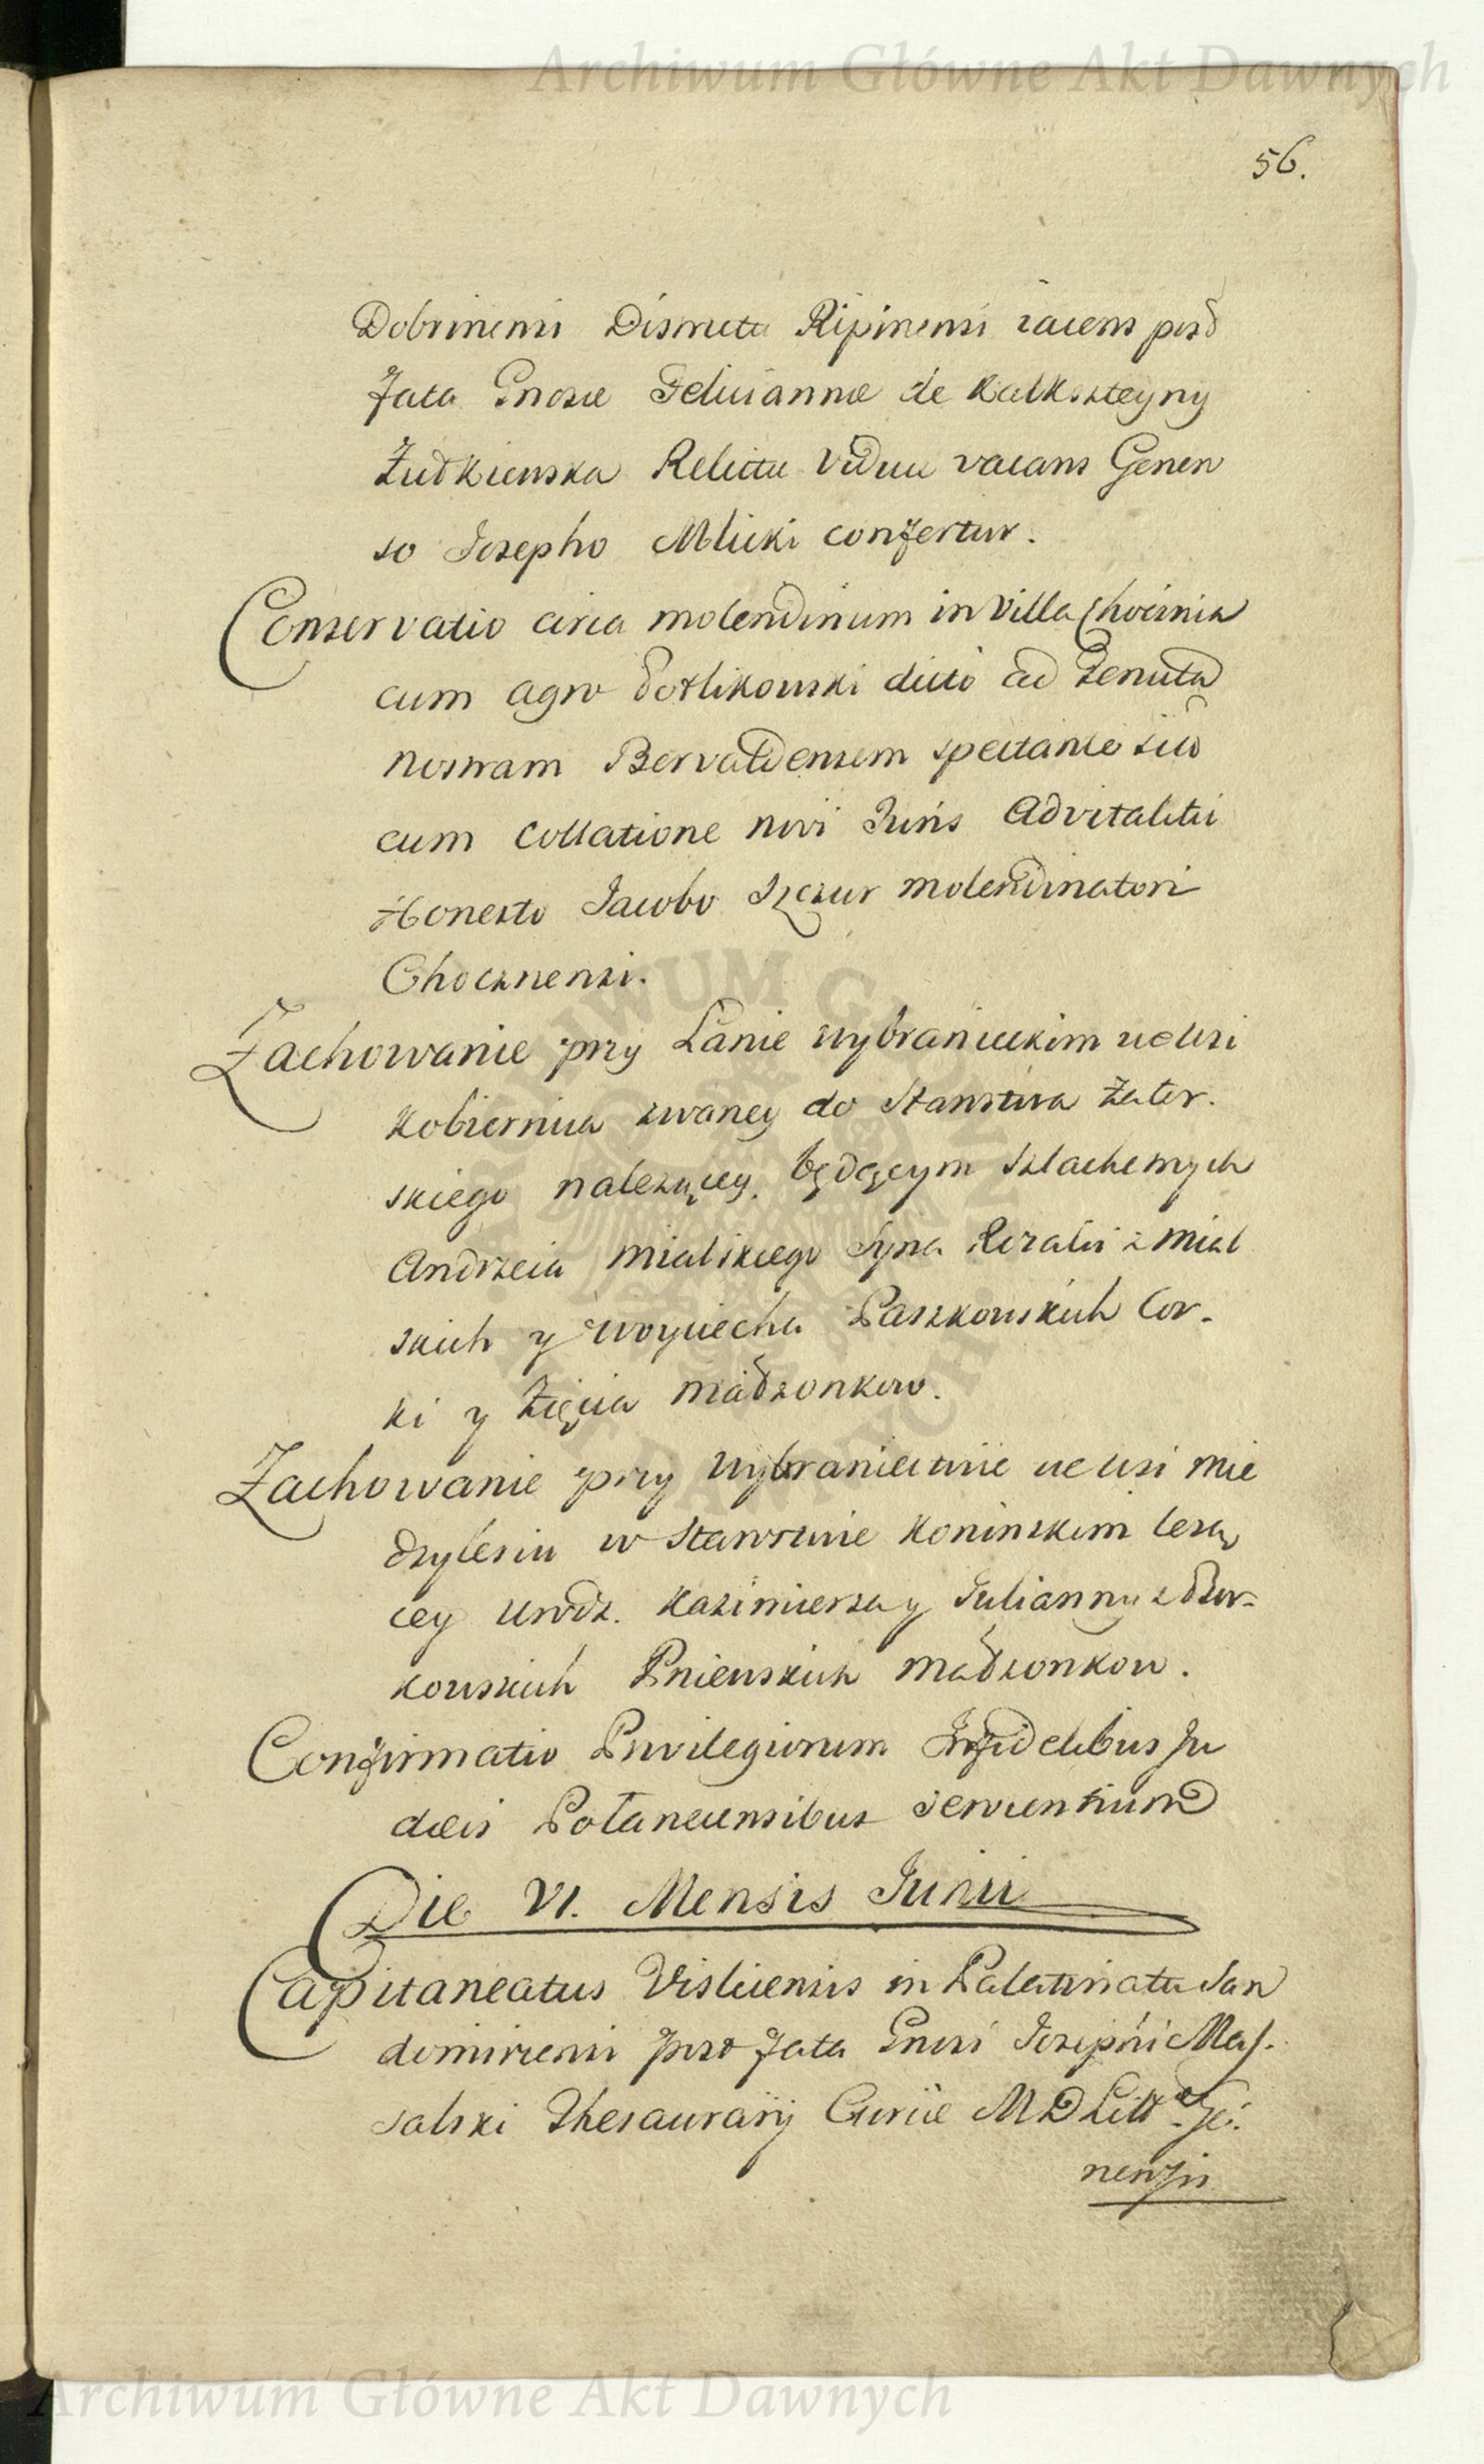 Archiwum Główne Akt Dawnych
56.
Dobrinensi Districtu Ripinensi iacens post
fata Gnosae Feliciannae de Kalksteyny
Żułkiewska Relictae Viduae vacans Genero
so Josepho Mlicki confertur.
Conservatio circa molendinum in Villa Chocznia
cum agro dicto ad Tenutam
nostram Bervaldensem spectante seu
cum Collatione novi Juris Advitalitii
Honesto Jacobo Szczur molendinatori
Chocznensi.
Zachowanie przy Łanie wybranieckim we wsi
Kobiernica zwaney do Starostwa Zator-
skiego należącey, będącym Szlachetnych
Andrzeia Mialskiego Syna Rozalii z Mial
skich y Woyciecha Paszkowskich Cor-
ki y Zięcia małżonkow.
Zachowanie przy Wybraniectwie we wsi Mie
dzylesiu w Starostwie Koninskim leżą
cey Urodz. Kazimierza y Julianny z Bor-
kowskich Pniewskich małżonkow.
Confirmatio Privilegiorum Infidelibus Ju
daeis Połanecensibus servientium
Die VI. Mensis Junii
Capitaneatus Visliciensis in Palatinatu San
domiriensi post fata Gnosi Josephi Mas-
salski Thesaurarij Curiae M D Litt
nensis
Archiwum Główne Akt Dawnych